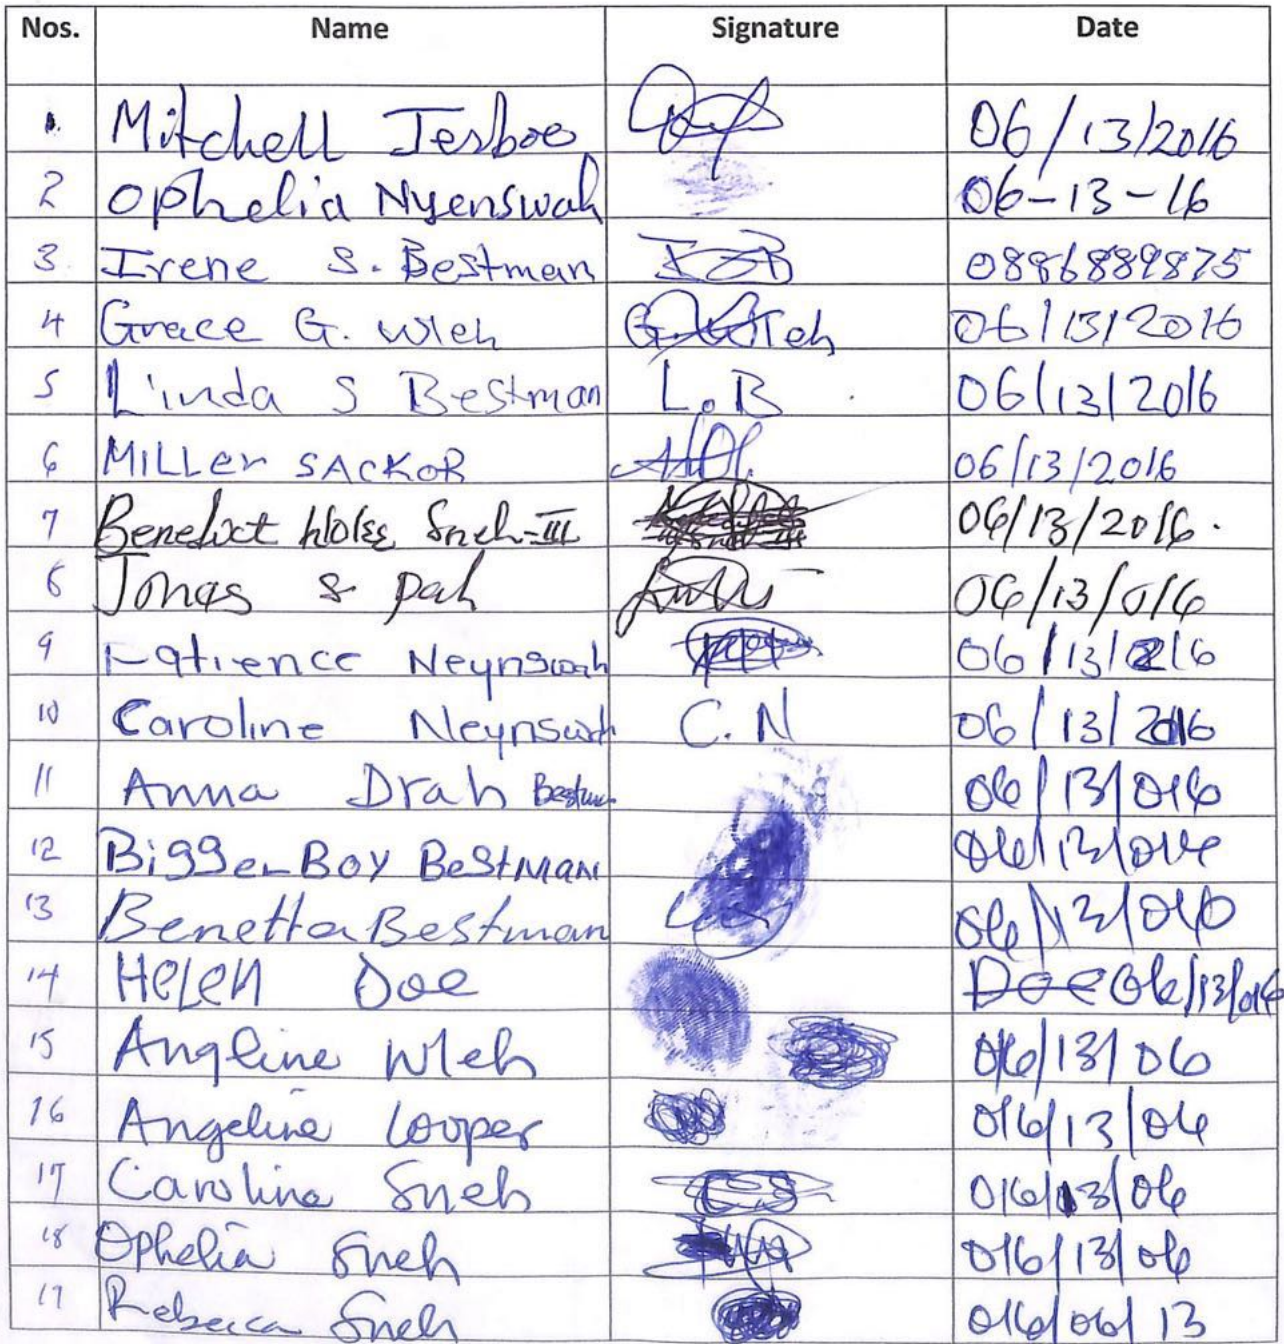 Nos. Name Signature Date
1. Mitchell Jesboe 06/13/2016
2 Ophelia Nyenswah 06-13-16
3. Irene S. Bestman ISB 0886889875
4 Grace G. Wleh G. Wleh 06/13/2016
5 Linda S Bestman L.B 06/13/2016
6 MILLer SACKOR 06/13/2016
7 Benedict Sneh-III 06/13/2016.
8 Jonas S pah 06/13/016
9 Patience Neynswah 06/13/2016
10 Caroline Neynswah C.N 06/13/2016
11 Anna Drah Bestman 06/13/016
12 Bigger Boy Bestman 06/13/016
13 Benetta Bestman 06/13/016
14 Helen Doe Doe 06/13/016
15 Angline Wleh 016/13/06
16 Angeline Cooper 016/13/06
17 Caroline Sneh CS 016/13/06
18 Ophelia Sneh 016/13/06
19 Rebecca Sneh 016/06/13